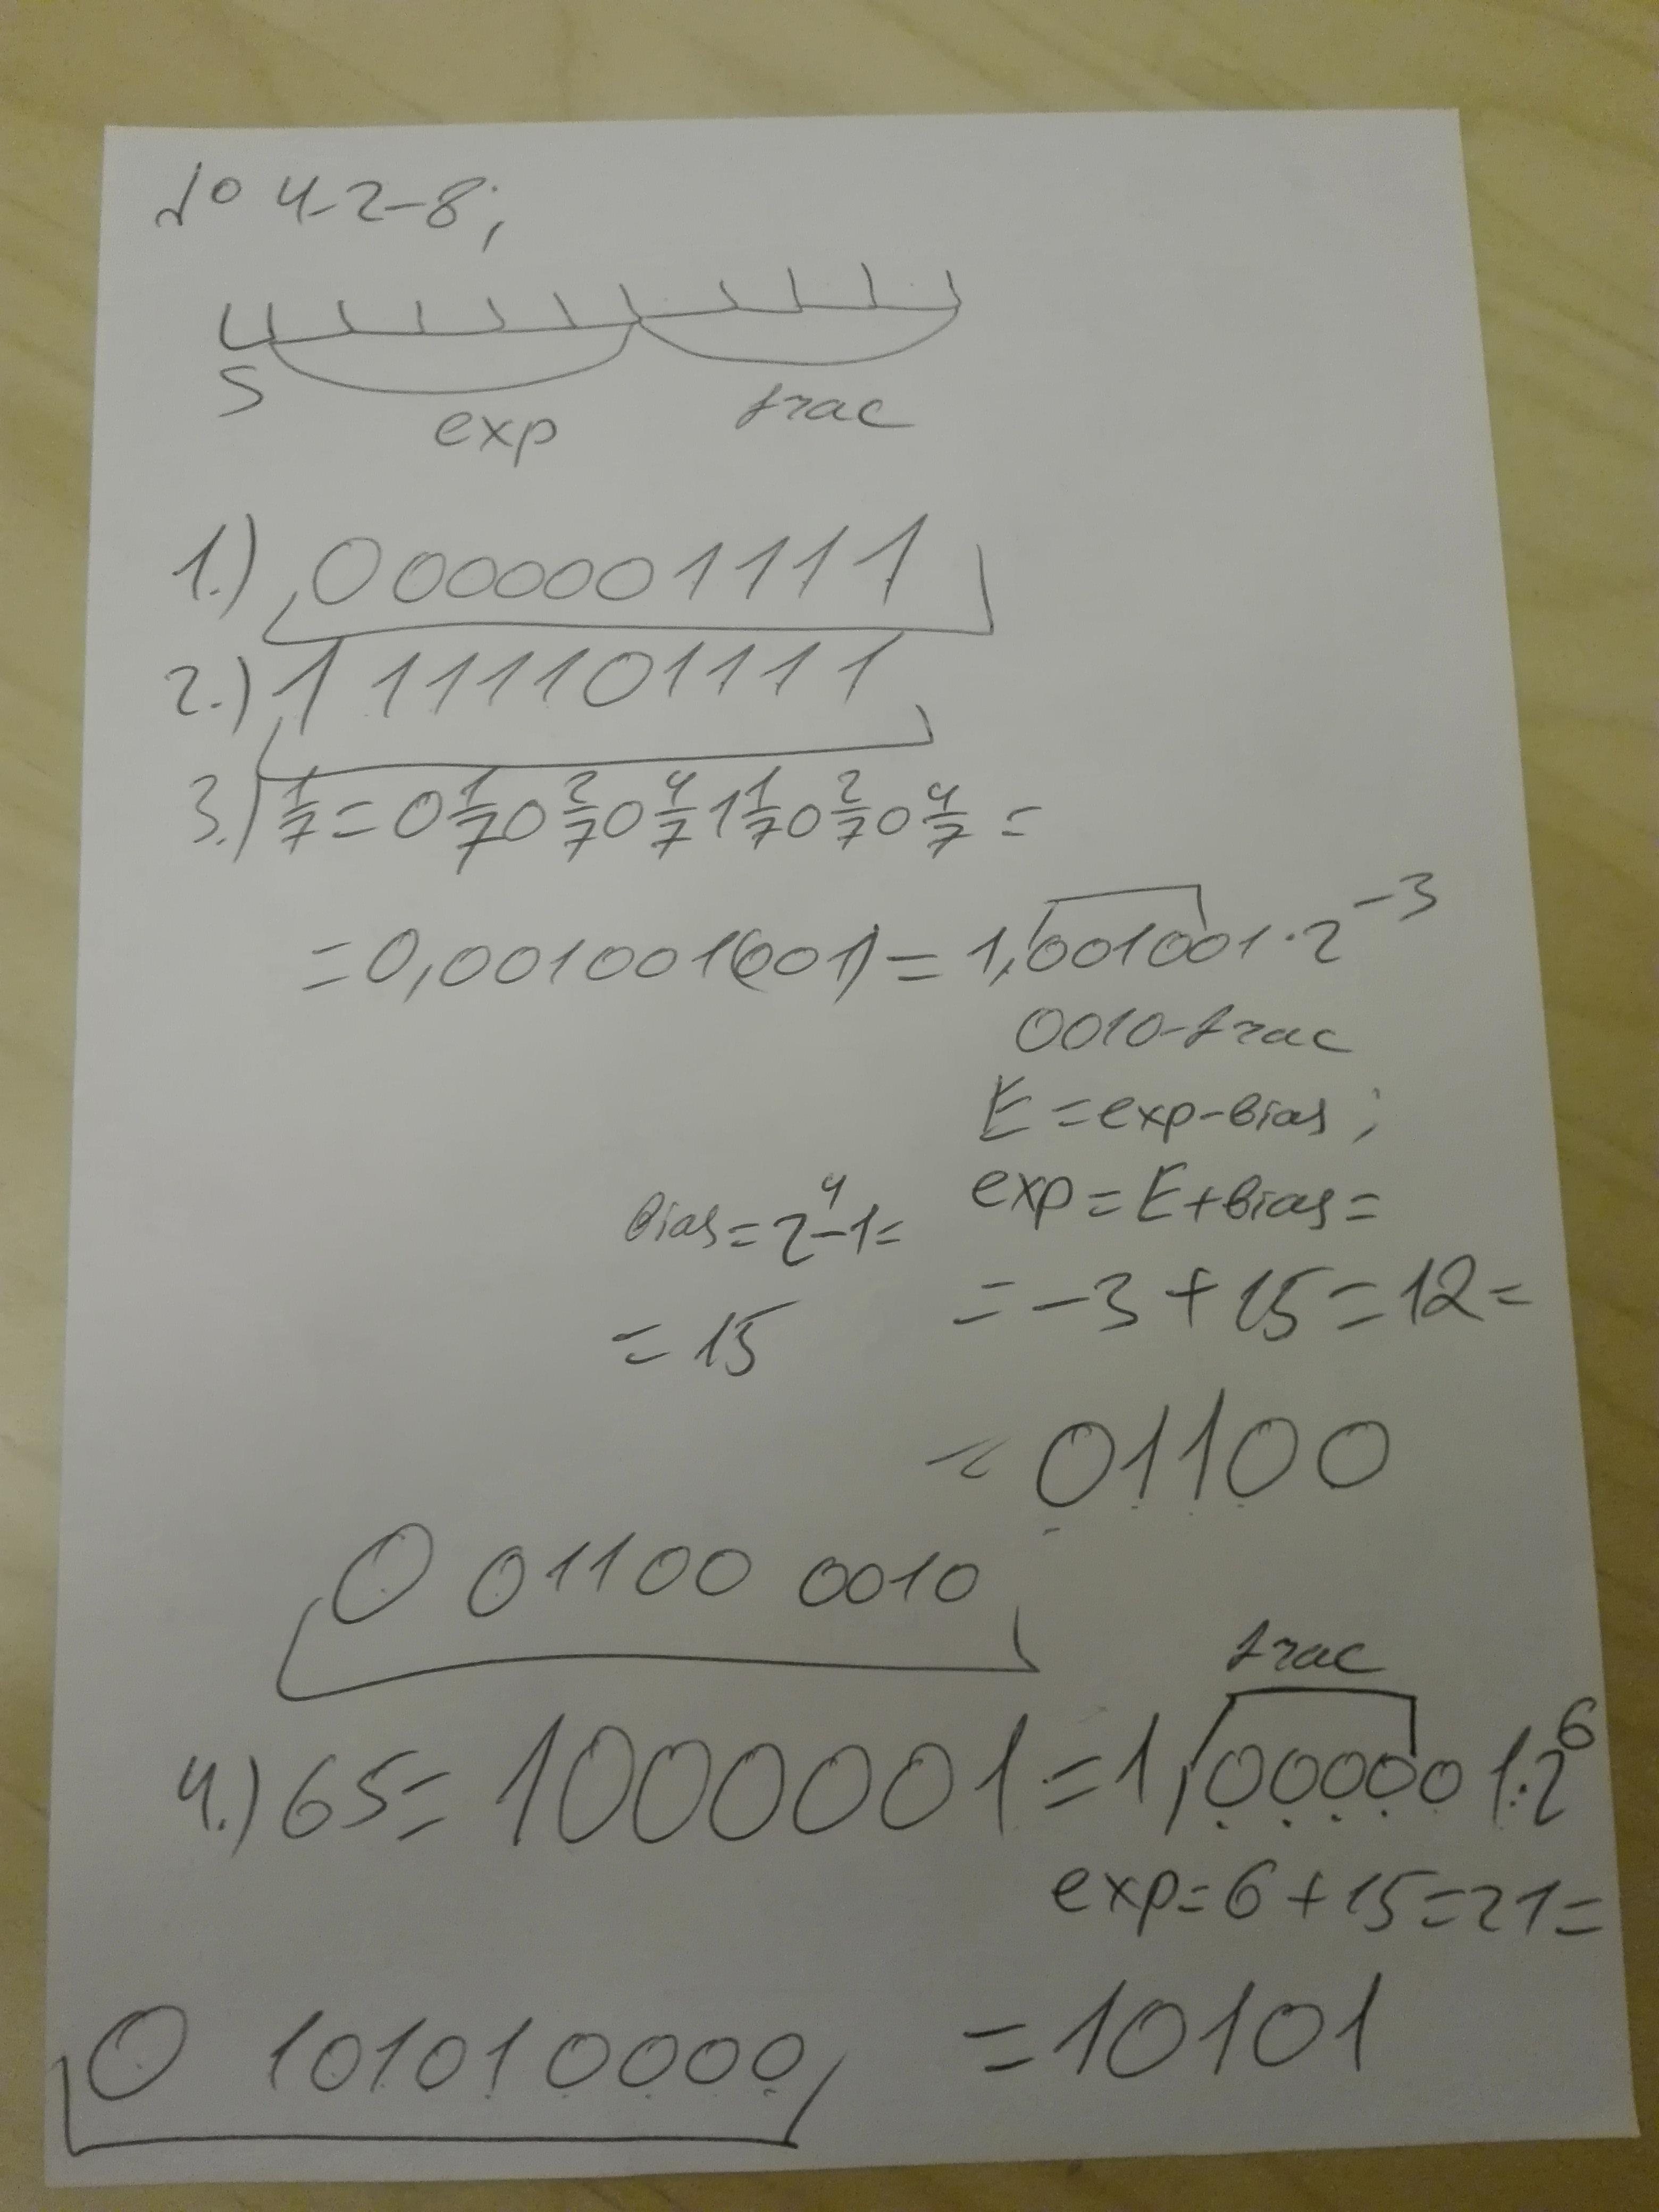 № 4-2-8;
S
exp
frac
1.) 0 000001111
2.) 1 111101111
3.) 1/7 = 0 1/7 0 2/7 0 4/7 1 1/7 0 2/7 0 4/7 =
= 0,001001(001) = 1,001001·2^-3
0010-frac
E = exp-bias;
bias = 2^4-1=
exp = E+bias =
= 15
= -3 + 15 = 12 =
= 01100
0 01100 0010
frac
4.) 65 = 1000001 = 1,000001·2^6
exp = 6 + 15 = 21 =
0 101010000
= 10101